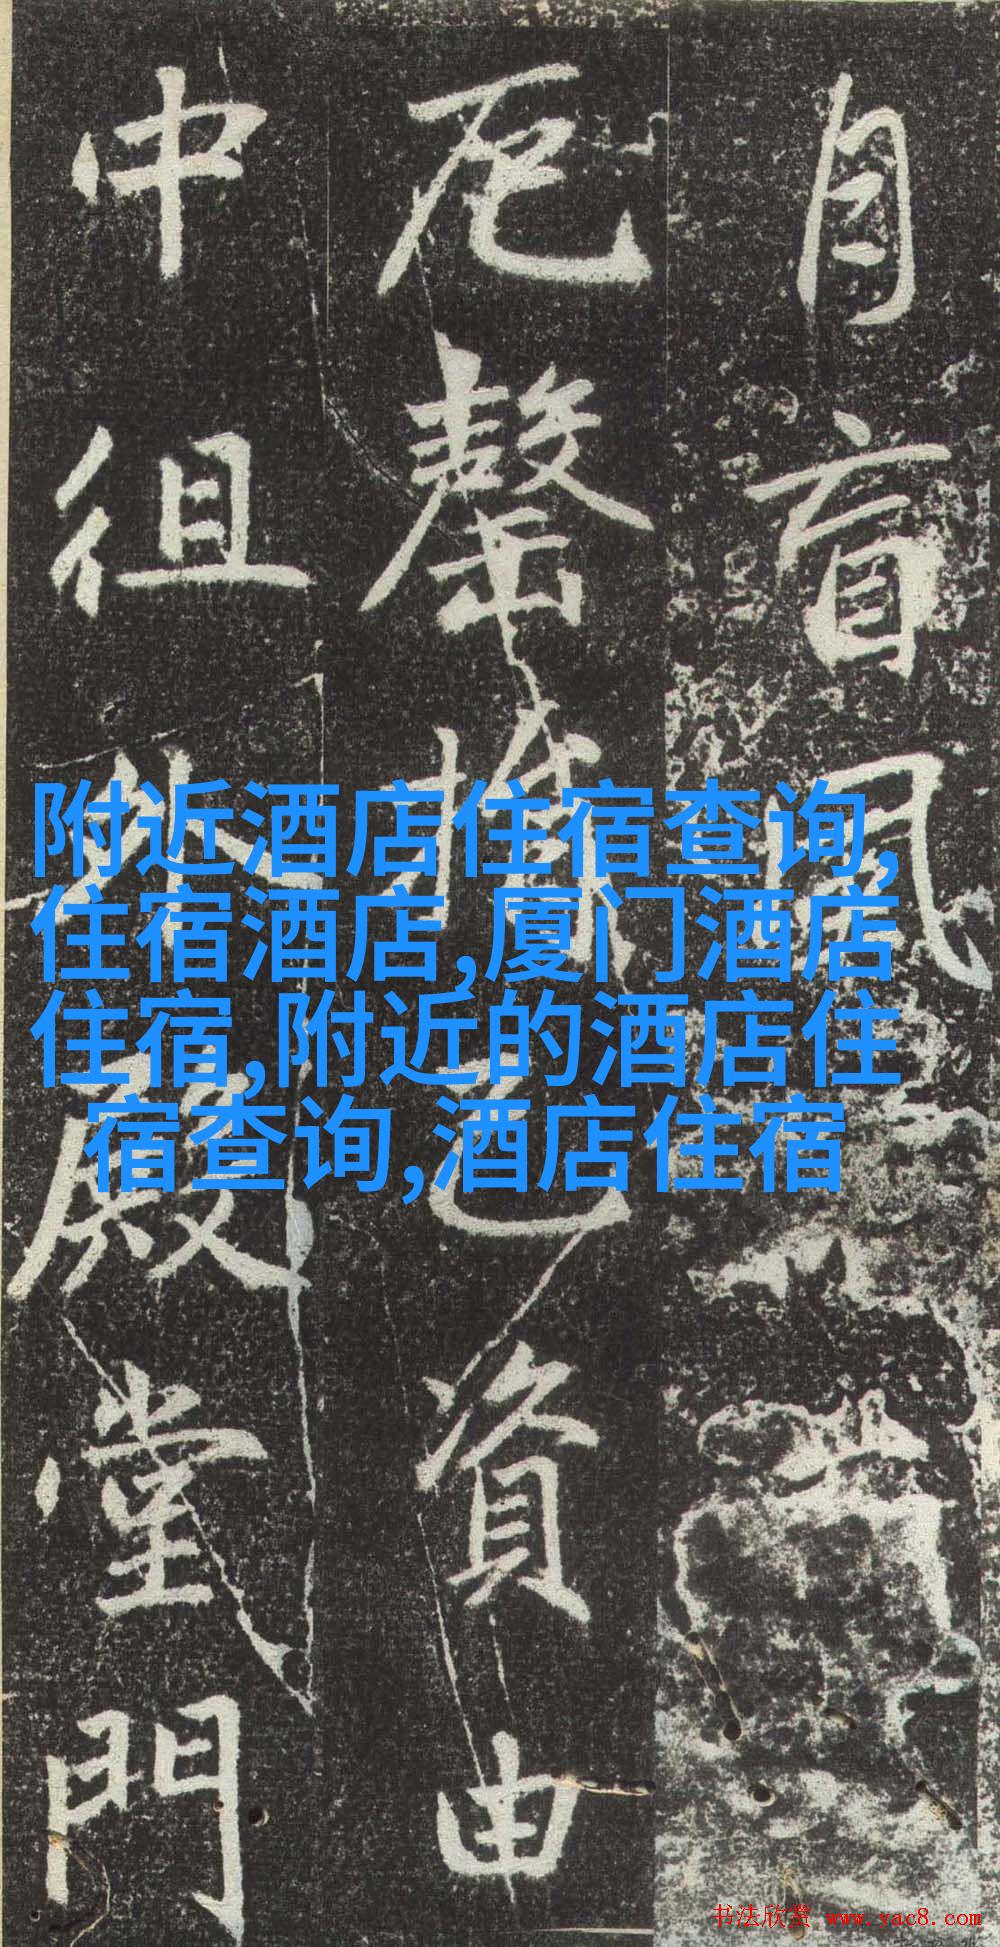 自盲風
厄罄資由
中徂殿堂門
附近酒店住宿查询,
住宿酒店,厦门酒店
住宿,附近的酒店住
宿查询,酒店住宿
书法欣赏 www.yac8.com